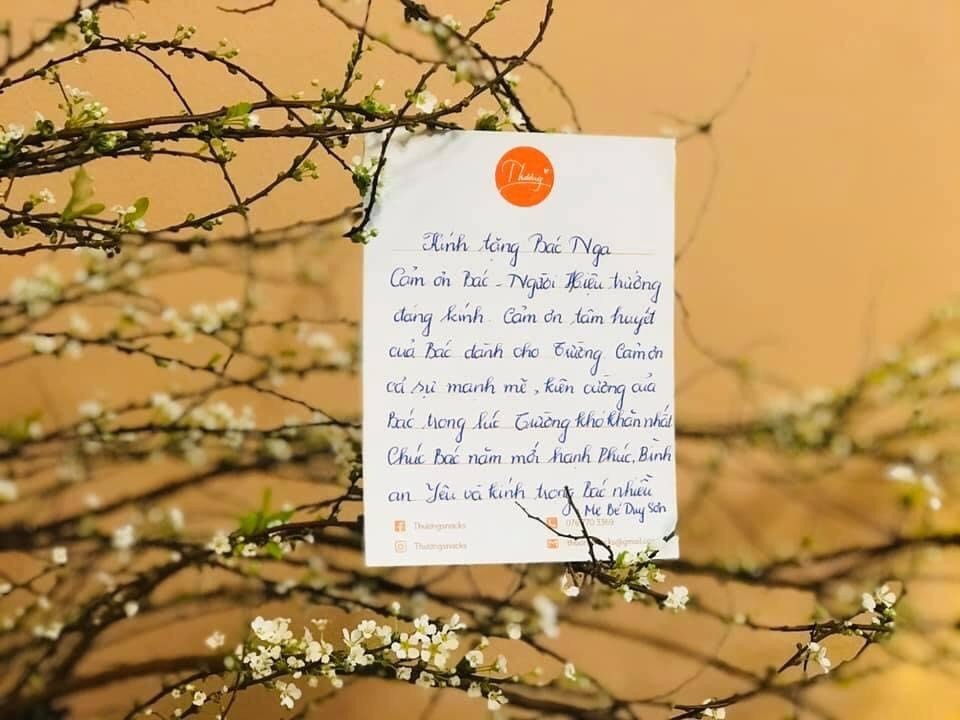 Thương
Kính tặng Bác Nga
Cảm ơn Bác - Người Hiệu trưởng
đáng kính. Cảm ơn tâm huyết
của Bác dành cho Trường. Cảm ơn
cả sự mạnh mẽ, kiên cường của
Bác trong lúc Trường khó khăn nhất
Chúc Bác năm mới hạnh Phúc, Bình
an Yêu và kính trọng Bác nhiều
Mẹ Bé Duy Sơn
Thuongsnacks
770 3369
Thuongsnacks
@gmail.com